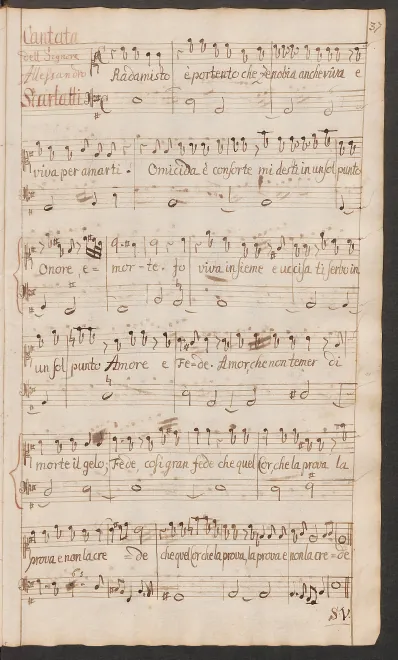 37
Cantata
dell Signore
Alessandro
Scarlatti
Radamisto è portento che Zenobia anche viva e
viva per amarti. Omicida è consorte mi desti in un sol punto
Onore, e = mor = te. Io viva insieme e uccisa ti serbo in
un sol punto Amore e Fe = de. Amor che non temer di
morte il gelo; Fede, cosi gran fede che quel Cor che la prova la
prova e non la cre de che quel Cor che la prova, la prova e non la cre = de
S.V.